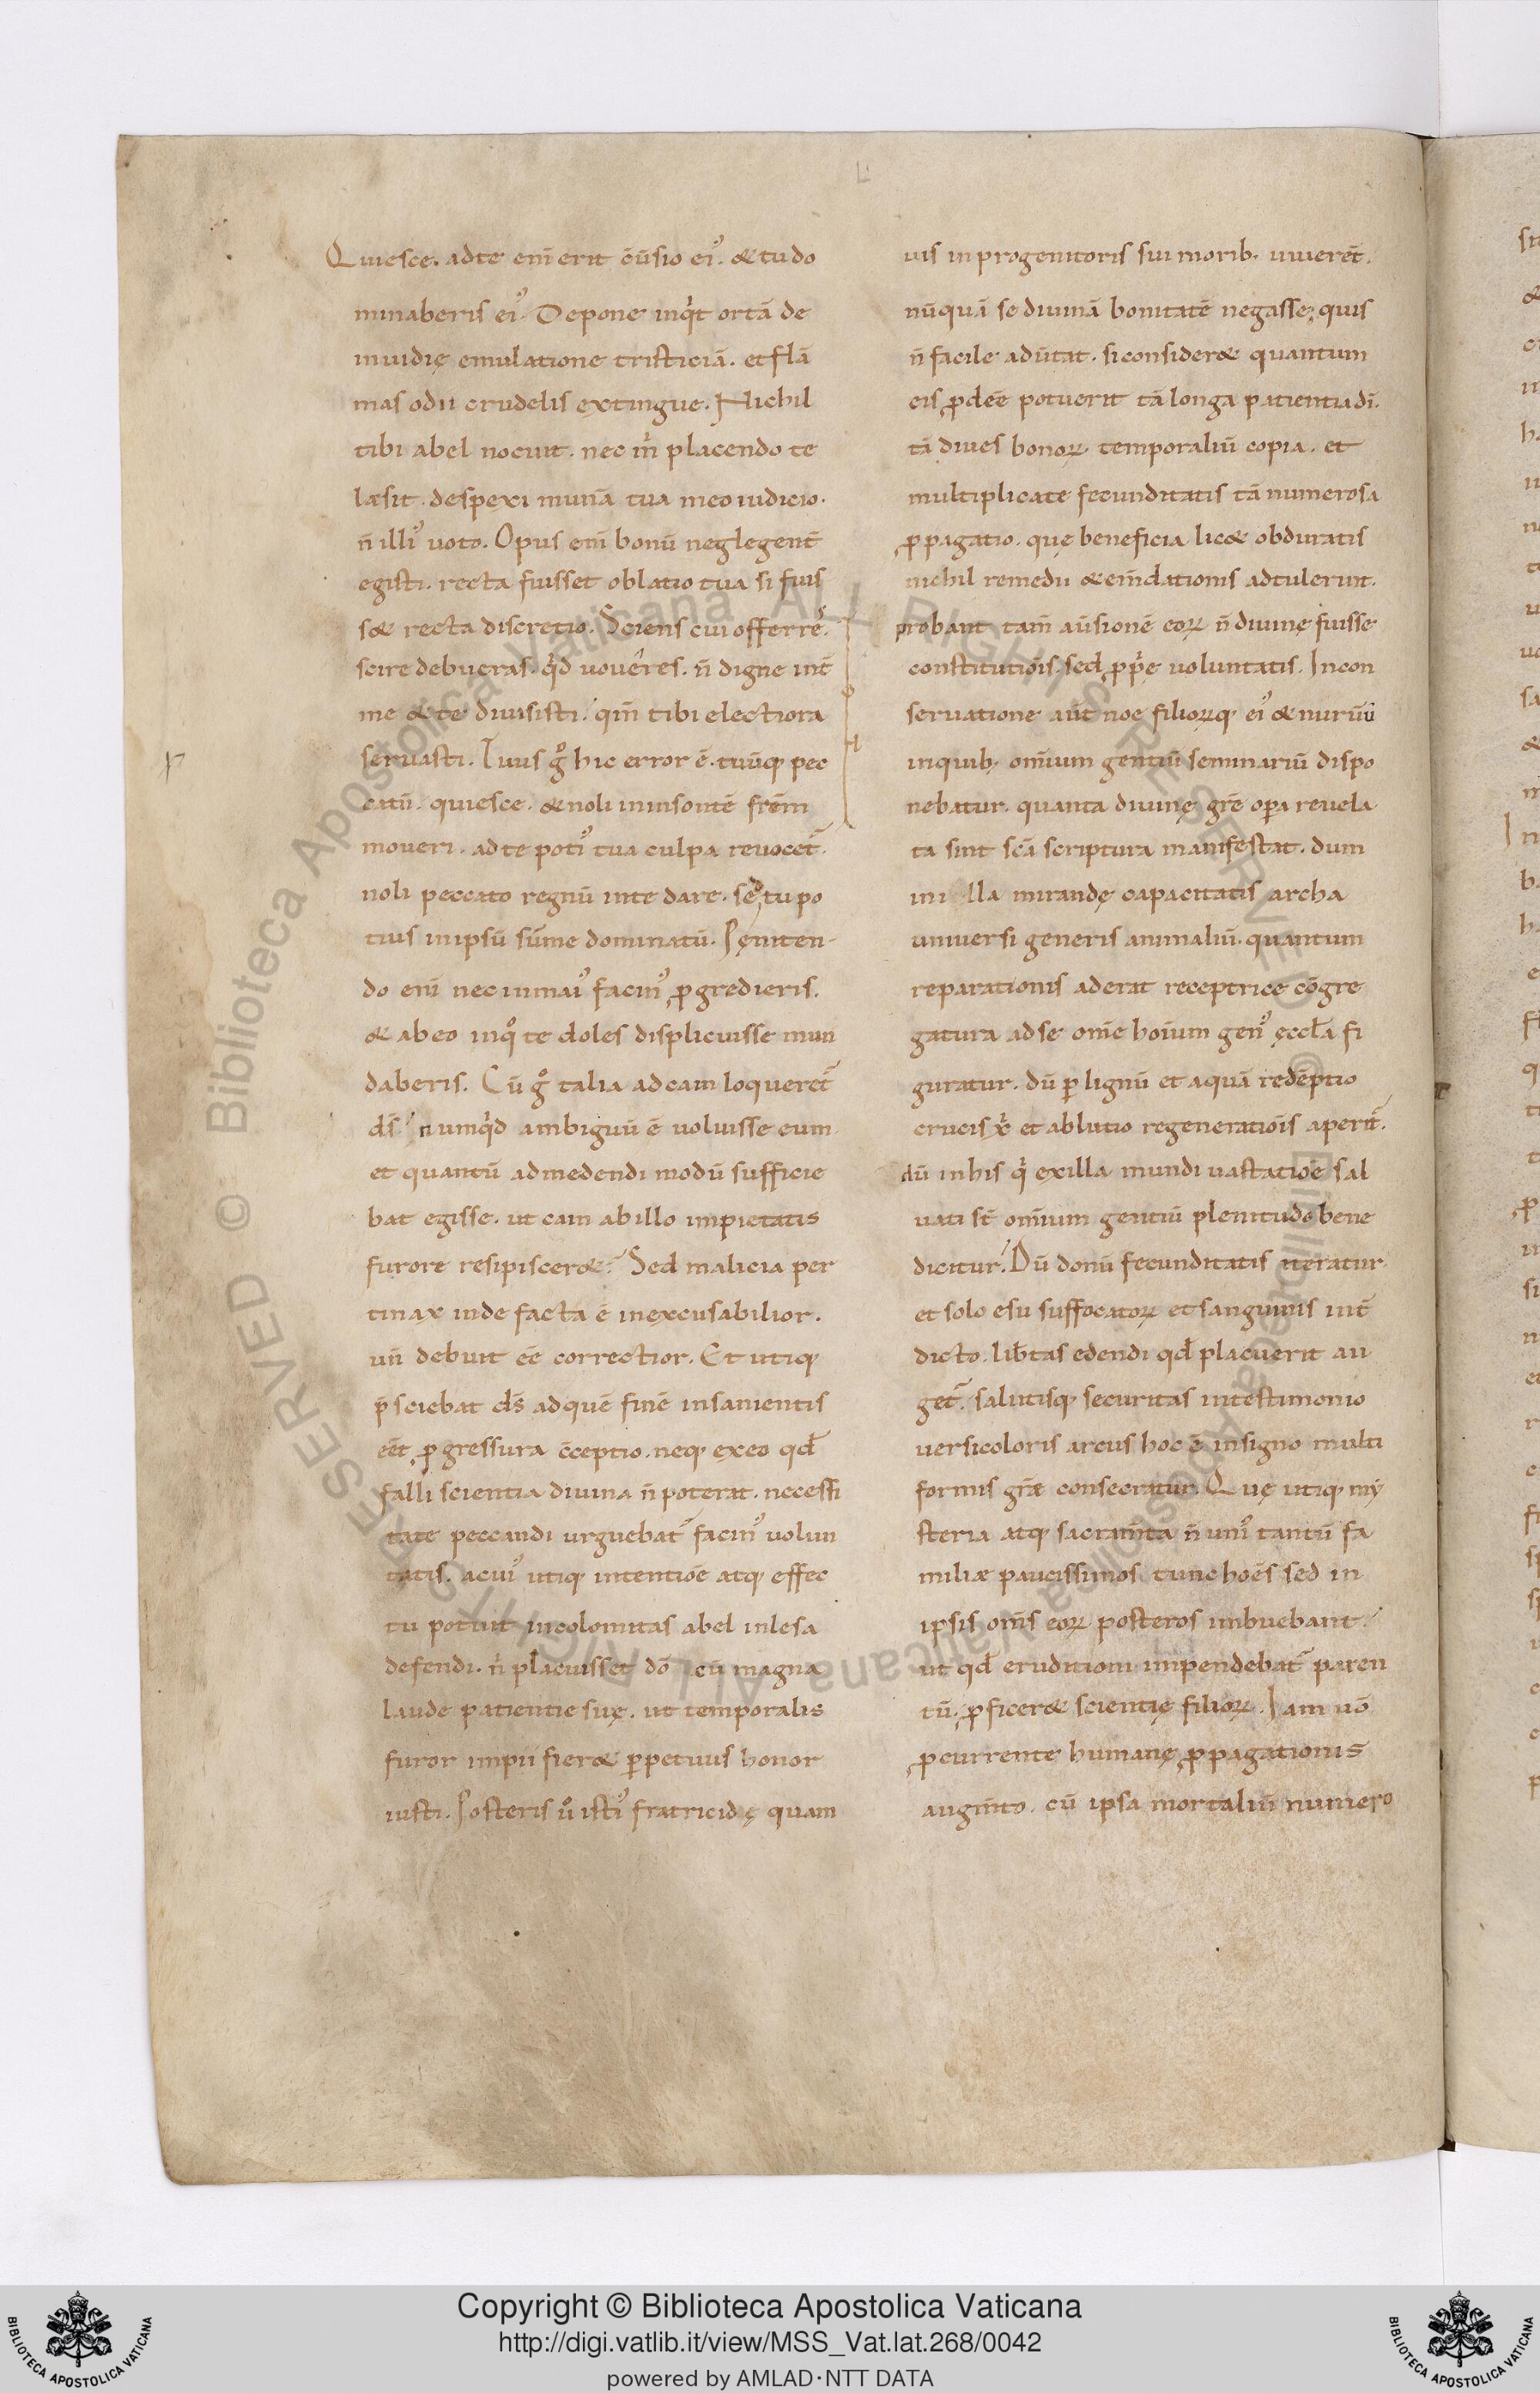 Quiesce. adte enī erit c̄ūsio eiꝰ. & tu do
minaberis eiꝰ. Depone inqͥt ortā de
inuidię emulatione tristiciā. et flā
mas odii crudelis extingue. Nichil
tibi abel nocuit. nec m̄ placendo te
læsit. despexi munā tua meo iudicio.
n̄ illiꝰ uoto. Opus enī bonū neglegent̄
egisti. recta fuisset oblatio tua si fuis
s& recta discretio. Sciens cui offerrēs.
scire debueras. qͥd uouēres. n̄ digne int̄
me & te diuisisti. qm̄ tibi electiora
seruasti. Tuus gͦ hic error ē. tuūqꝫ pec
catū. quiesce. & noli in insontē frēm
moueri. ad te potiꝰ tua culpa reuocet̄.
noli peccato regnū inte dare. sed tu po
tius in ipsū sūme dominatū. Pęniten-
do enī nec inmaiꝰ facinꝰ ꝓgredieris.
& abeo inqͦ te doles displicuisse mun
daberis. Cū gͦ talia ad cain loqueret̄
d̄s. numqͥd ambiguū ē uoluisse eum.
et quantū ad medendi modū sufficie
bat egisse. ut cain ab illo impietatis
furore resipiscer&. Sed malicia per
tinax inde facta ē inexcusabilior.
un̄ debuit ēē correctior. Et utiqꝫ
p̄sciebat d̄s ad quē finē insanientis
eēt ꝓgressura c̄ceptio. neqꝫ ex eo qd̄
falli scientia diuina n̄ poterat. necessi
tate peccandi urguebat̄ facinꝰ uolun
tatis. a cuiꝰ utiqꝫ intentiōe atqꝫ effec
tu potuit incolomitas abel inlesa
defendi. nͥ placuisset dō cū magna
laude patientie suę. ut temporalis
furor impii fier& ꝑpetuus honor
iusti. Posteris uͦ istiꝰ fratricidę quam
uis in progenitoris sui moribꝫ. uiuerēt.
nūquā se diuinā bonitatē negasse. quis
n̄ facile aduertat. si consider& quantum
eis ꝓdeē potuerit tā longa patientia dī.
tā diues bonoꝝ temporaliū copia. et
multiplicate fecunditatis tā numerosa
ꝓpagatio. quę beneficia lic& obduratis
nichil remedii & em̄dationis adtulerunt.
probant tam̄ aūsionē eoꝝ n̄ diuinę fuisse
constitutiōis. sed ꝓpͥę uoluntatis. In con
seruatione aut̄ noe filioꝝqꝫ eiꝰ & nuruū
in quibꝫ omīum gentiū seminariū dispo
nebatur. quanta diuinę grē oꝑa reuela
ta sint scā scriptura manifestat. dum
in illa mirandę capacitatis archa
uniuersi generis animaliū. quantum
reparationis aderat receptrice cōgre
gatura ad se om̄e hoīum genꝰ ęccl̄a fi
guratur. dū ꝑ lignū et aquā redēptio
crucis xͥ et ablutio regeneratiōis aperit̄.
dū in his qͥ ex illa mundi uastatiōe sal
uati st̄ omīum gentiū plenitudo bene
dicitur. Dū donū fecunditatis iteratur.
et solo esu suffocatoꝝ et sanguinis int̄
dicto. lib̄tas edendi qd̄ placuerit au
get̄. salutisqꝫ securitas in testimonio
uersicoloris arcus hoc ē in signo multi
formis grǣ consecratur. Quę utiqꝫ mẏ
steria atqꝫ sacram̄ta n̄ uniꝰ tantū fa
miliæ paucissimos tunc hoēs sed in
ipsis om̄s eoꝝ posteros imbuebant.
ut qd̄ eruditioni impendebat̄ paren
tū. ꝓficer& scientię filioꝝ. Iam uō
ꝓcurrente humanę ꝓpagationis
augm̄to. cū ipsa mortaliū numero
BIBLIOTECA APOSTOLICA VATICANA
Copyright © Biblioteca Apostolica Vaticana
http://digi.vatlib.it/view/MSS_Vat.lat.268/0042
powered by AMLAD·NTT DATA
BIBLIOTECA APOSTOLICA VATICANA
© Biblioteca Apostolica Vaticana ALL RIGHTS RESERVED